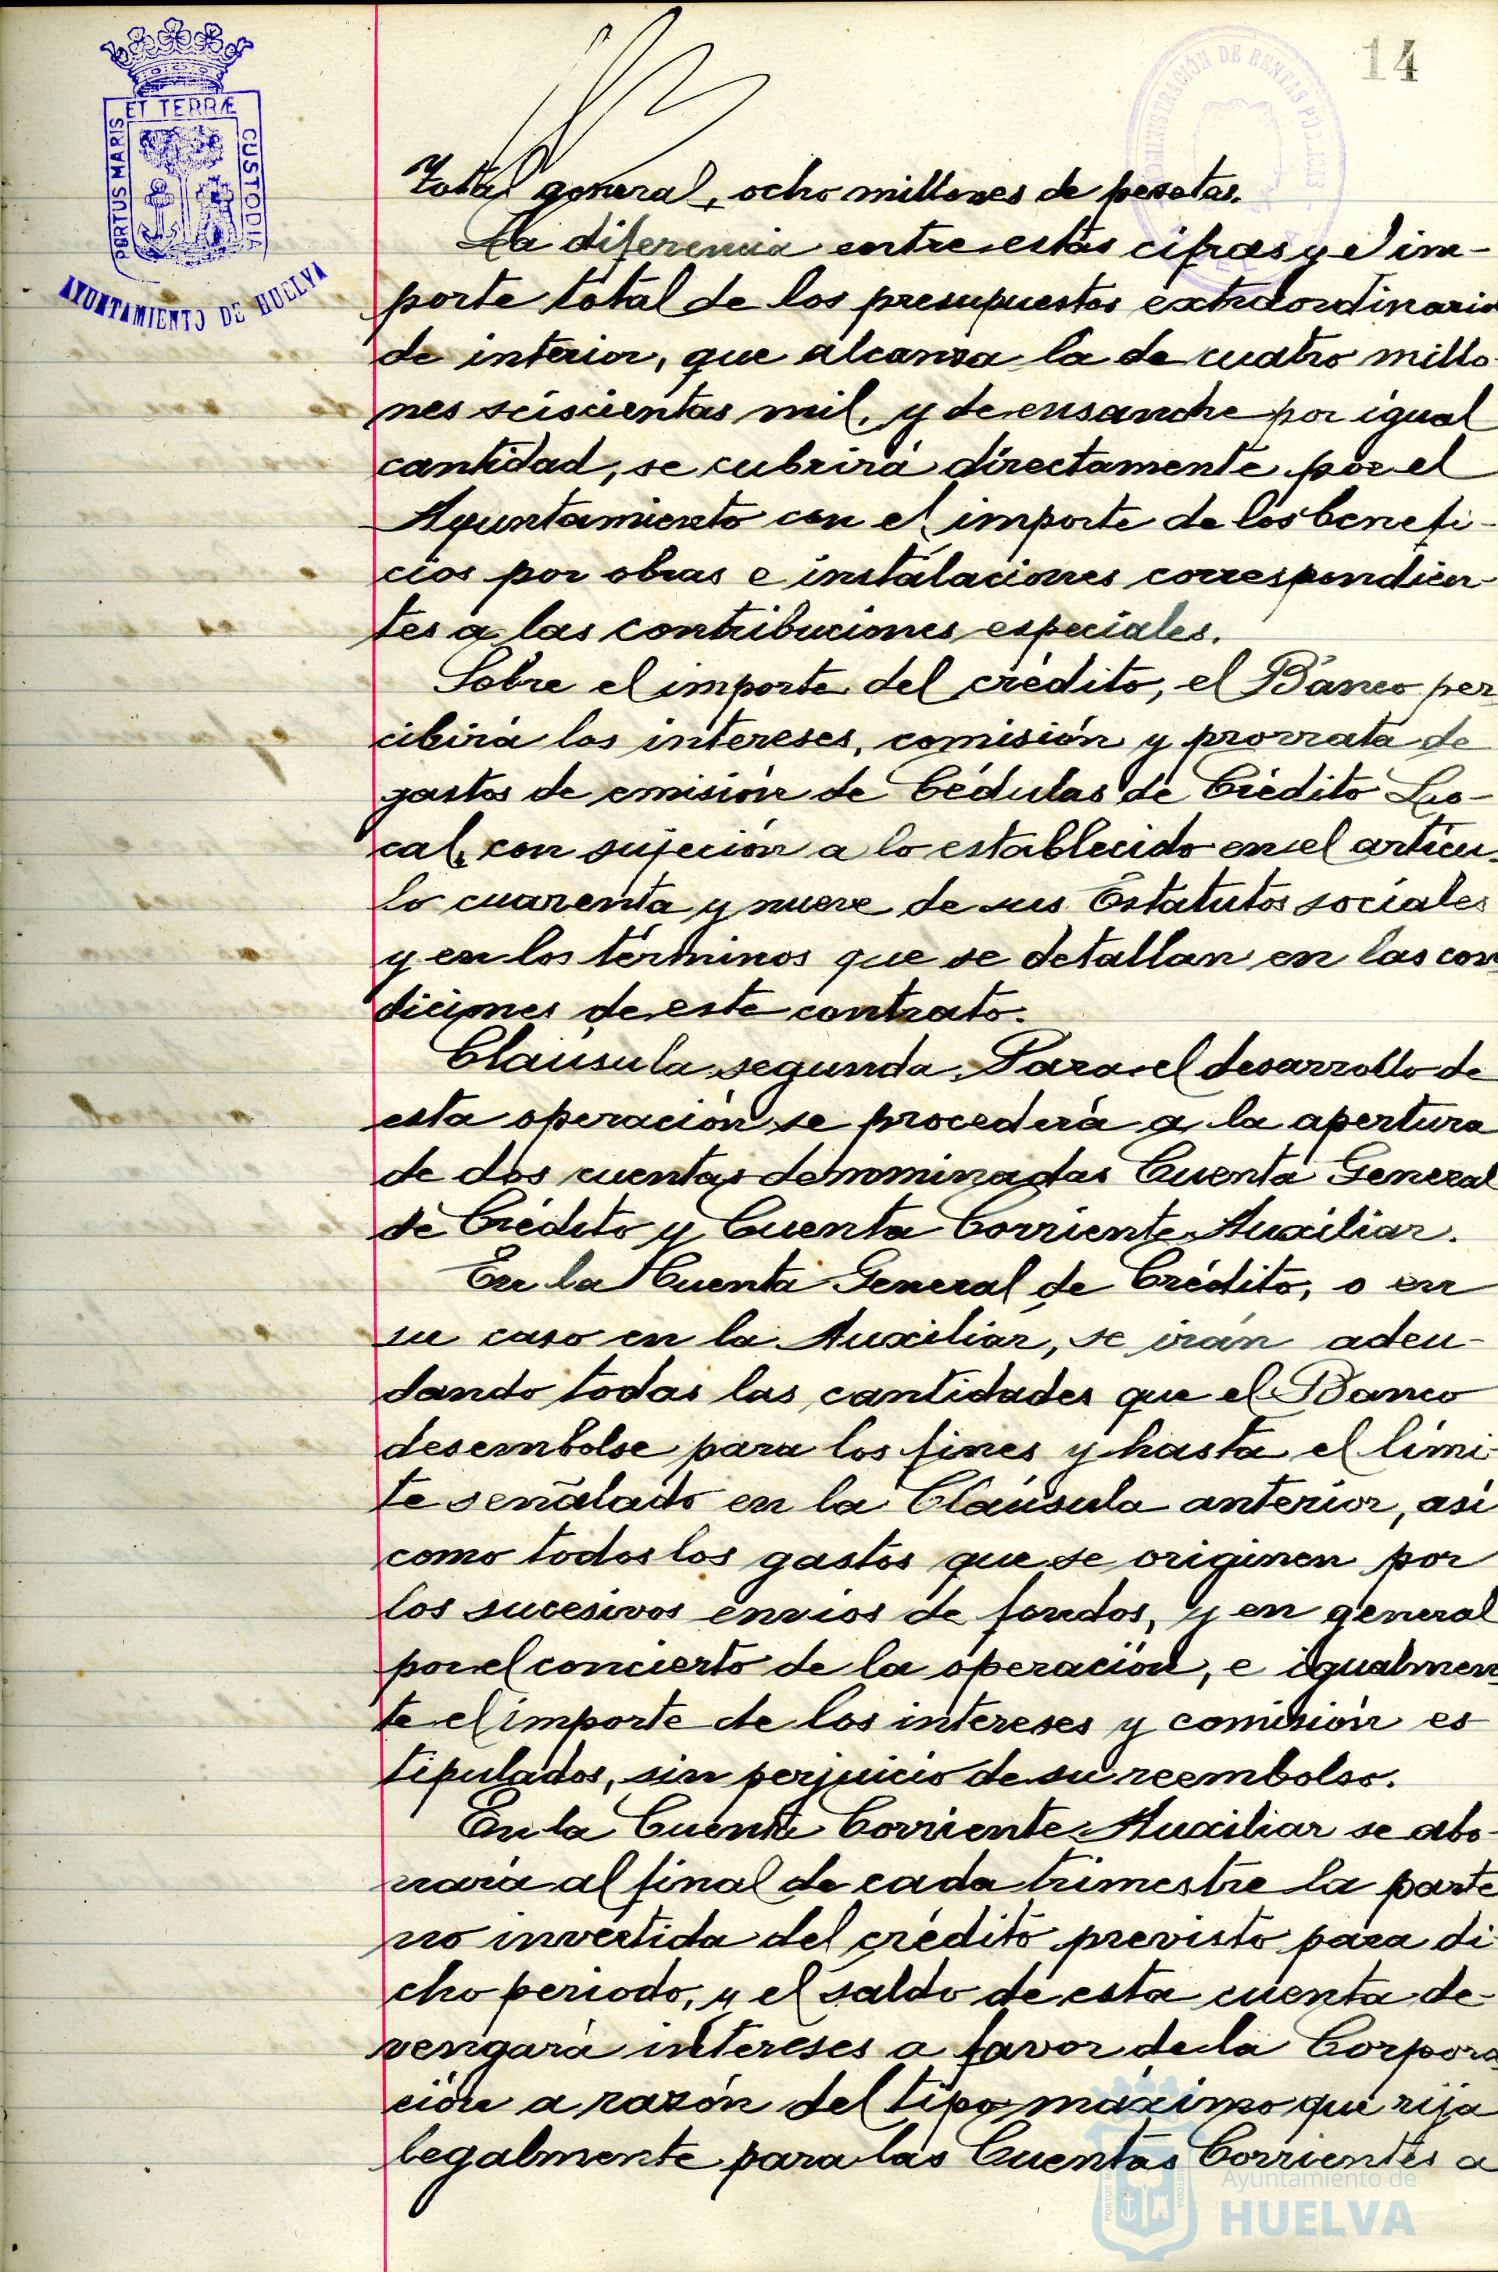 14
ET TERRÆ
PORTUS MARIS
CUSTODIA
AYUNTAMIENTO DE HUELVA
ADMINISTRACIÓN DE RENTAS PÚBLICAS
Total general, ocho millones de pesetas.
La diferencia entre estas cifras y el im-
porte total de los presupuestos extraordinario
de interior, que alcanza la de cuatro millo
nes seiscientas mil, y de ensanche por igual
cantidad, se cubrirá directamente por el
Ayuntamiento con el importe de los benefi-
cios por obras e instalaciones correspondien-
tes a las contribuciones especiales.
Sobre el importe del crédito, el Banco per
cibirá los intereses, comisión y prorrata de
gastos de emisión de Cédulas de Crédito Lo-
cal, con sujeción a lo establecido en el artícu-
lo cuarenta y nueve de sus Estatutos sociales
y en los términos que se detallan en las con
diciones de este contrato.
Claúsula segunda. Para el desarrollo de
esta operación se procederá a la apertura
de dos cuentas denominadas Cuenta General
de Crédito y Cuenta Corriente Auxiliar.
En la Cuenta General de Crédito, o en
su caso en la Auxiliar, se irán adeu-
dando todas las cantidades que el Banco
desembolse para los fines y hasta el lími-
te señalado en la Claúsula anterior, así
como todos los gastos que se originen por
los sucesivos envíos de fondos, y en general
por el concierto de la operación, e igualmen
te el importe de los intereses y comisión es
tipulados, sin perjuicio de su reembolso.
En la Cuenta Corriente Auxiliar se abo-
nará al final de cada trimestre la parte
no invertida del crédito previsto para di
cho periodo, y el saldo de esta cuenta de-
vengará intereses a favor de la Corpora
ción a razón del tipo máximo que rija
legalmente para las Cuentas Corrientes a
Ayuntamiento de
HUELVA